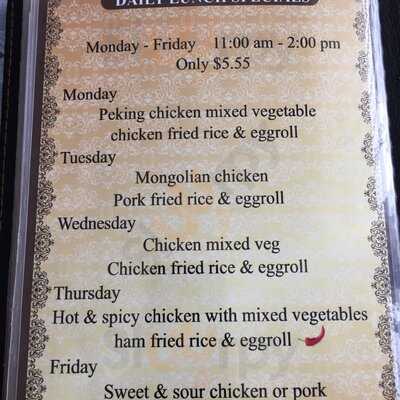 DAILY LUNCH SPECIALS
Monday - Friday 11:00 am - 2:00 pm
Only $5.55
Monday
Peking chicken mixed vegetable
chicken fried rice & eggroll
Tuesday
Mongolian chicken
Pork fried rice & eggroll
Wednesday
Chicken mixed veg
Chicken fried rice & eggroll
Thursday
Hot & spicy chicken with mixed vegetables
ham fried rice & eggroll
Friday
Sweet & sour chicken or pork